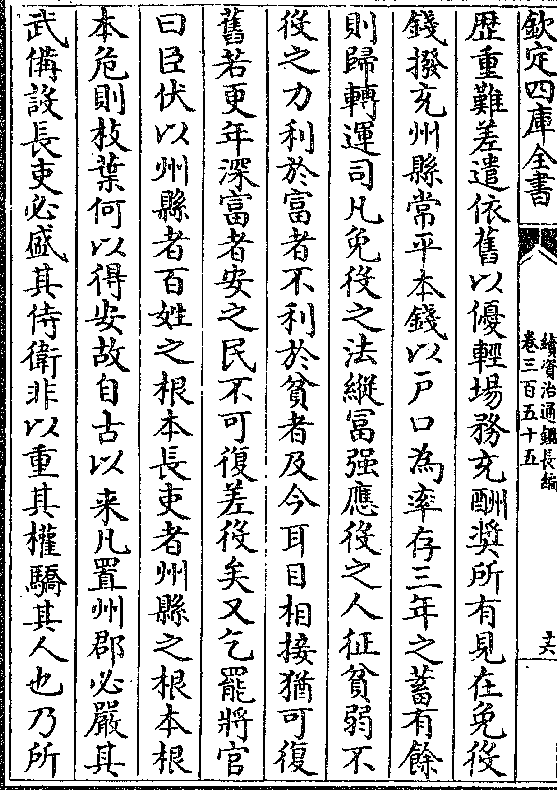 欽定四庫全書
續資治通鑑長編
卷三百五十五
十六
歴重難差遣依舊以優輕場務充酬奨所有見在免役
錢撥充州縣常平本錢以戸口為率存三年之蓄有餘
則歸轉運司凡免役之法縱冨强應役之人征貧弱不
役之力利於富者不利於貧者及今耳目相接猶可復
舊若更年深富者安之民不可復差役矣又乞罷將官
曰臣伏以州縣者百姓之根本長吏者州縣之根本根
本危則枝葉何以得安故自古以来凡置州郡必嚴其
武備設長吏必盛其侍衛非以重其權驕其人也乃所